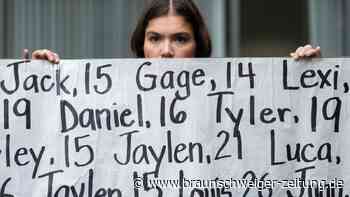 Jack, 15 Gage, 14 Lexi,
19 Daniel, 16 Tyler, 19
ley, 15 Jaylen, 21 Luca,
Jaylen 15 Louis 26
www.braunschweiger-zeitung.de